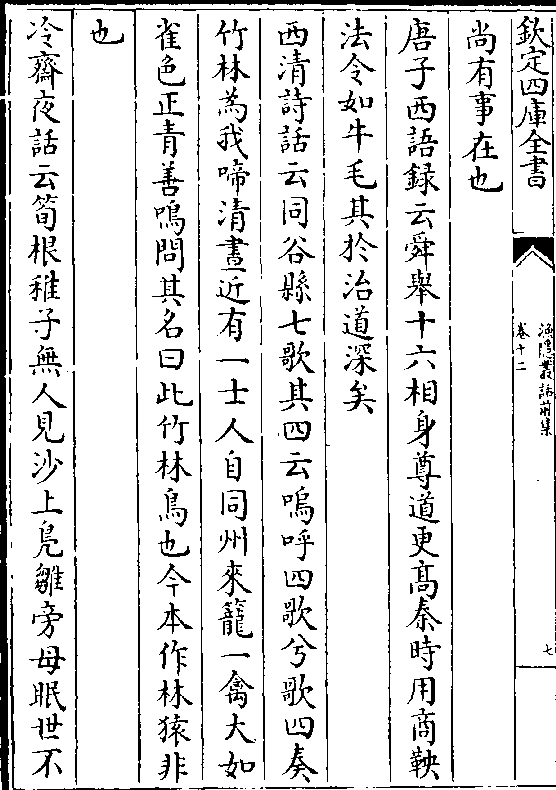 欽定四庫全書
漁隱叢話前集
卷十二
七
尚有事在也
唐子西語録云舜舉十六相身尊道更髙秦時用商鞅
法令如牛毛其於治道深矣
西清詩話云同谷縣七歌其四云嗚呼四歌兮歌四奏
竹林為我啼清晝近有一士人自同州來籠一禽大如
雀色正青善鳴問其名曰此竹林鳥也今本作林猿非
也
冷齋夜話云筍根稚子無人見沙上鳬雛旁母眠世不